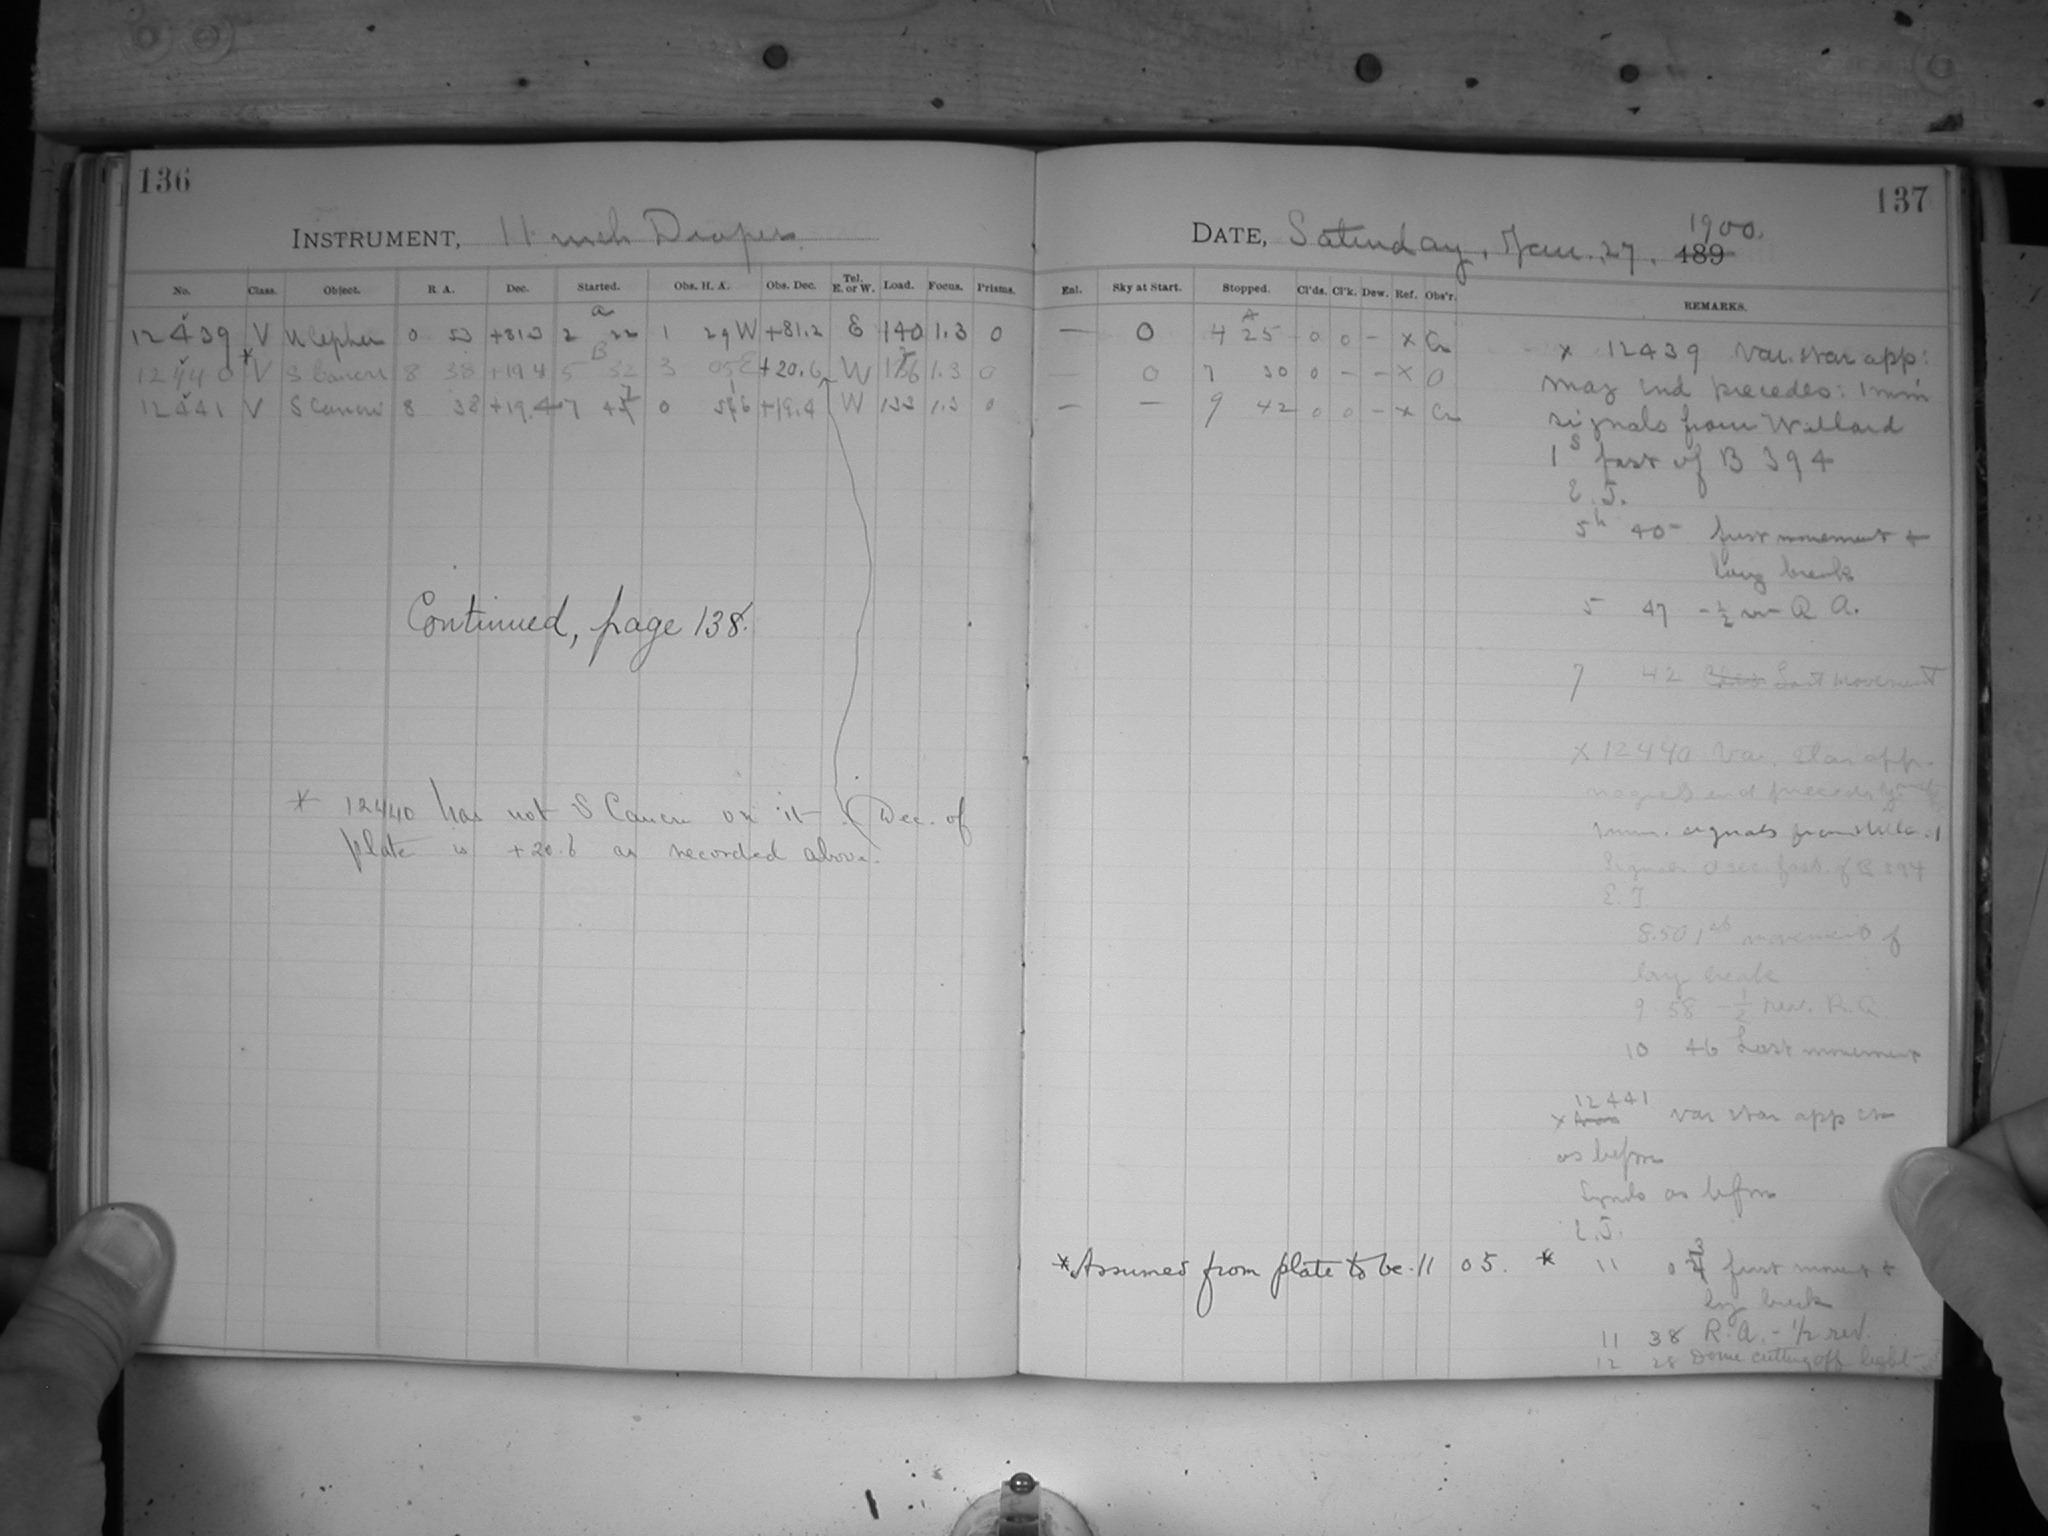 136
INSTRUMENT, 11 inch Draper.
No. Class. Object. R A. Dec. Started. Obs. H. A. Obs. Dec. Tel. E. or W. Load. Focus. Prisms.
12439 V U Cephei 0 53 +81.3 2 22 1 29 W +81.2 E 140 1.3 0
12440 * V S Cancri 8 38 +19.4 5 52 3 05 E +20.6 W 1.3 0
12441 V S Cancri 8 38 +19.4 7 0 +19.4 W 133 1.3 0
Continued, page 138.
* 12440 has not S Cancri on it (Dec. of
plate is +20.6 as recorded above.
137
DATE, Saturday, Jan. 27. 1900. 189
Enl. Sky at Start. Stopped. Cl'ds. Cl'k. Dew. Ref. Obs'r. REMARKS.
— 0 4 25 0 0 – x Cn
— 0 7 30 0 – – x O
— — 9 42 0 0 – x Cn
x 12439 Var. star app:
mag end precedes: 1 min
signals from Willard
1 s fast of B 394
E. J.
5h 40 first movement +
long break
5 47 -½ R A.
7 42 Last movement
x 12440 Var. star app.
end precedes
1 min. signals from
Signals 0 sec. fast of B 394
E. J.
8.50 1st movement of
long break
9 58 -½ rev. R. A.
10 46 Last movement
12441
x var star app
as before
Signals as before
E. J.
*Assumed from plate to be 11 05. * 11 first movement +
long break
11 38 R. A. - 1/2 rev.
12 28 Dome cutting off light